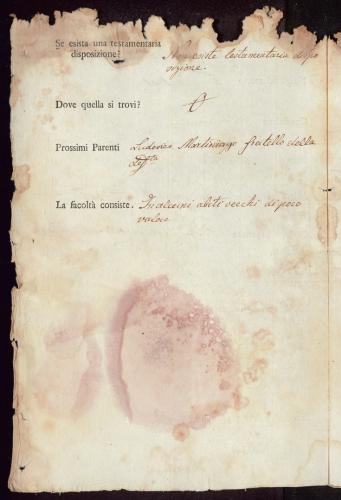 Se esista una testamentaria
disposizione? Non esiste testamentaria dispo
sizione.
Dove quella si trovi?
Prossimi Parenti Ludovico fratello della
La facoltà consiste. In alcuni abiti vecchi di poco
valore